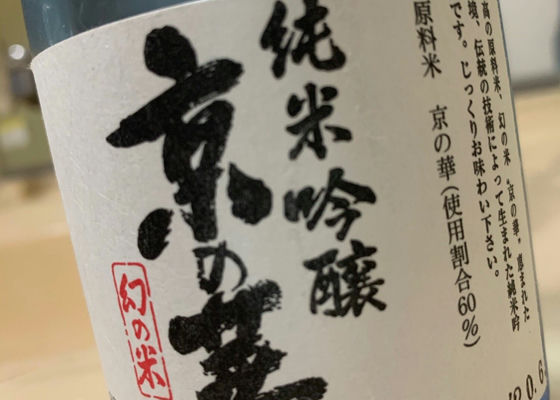 高の原料米、幻の米「京の華」。恵まれた
境、伝統の技術によって生まれた純米吟
です。じっくりお味わい下さい。
原料米 京の華(使用割合60%)
純米吟醸
京の華
幻の米